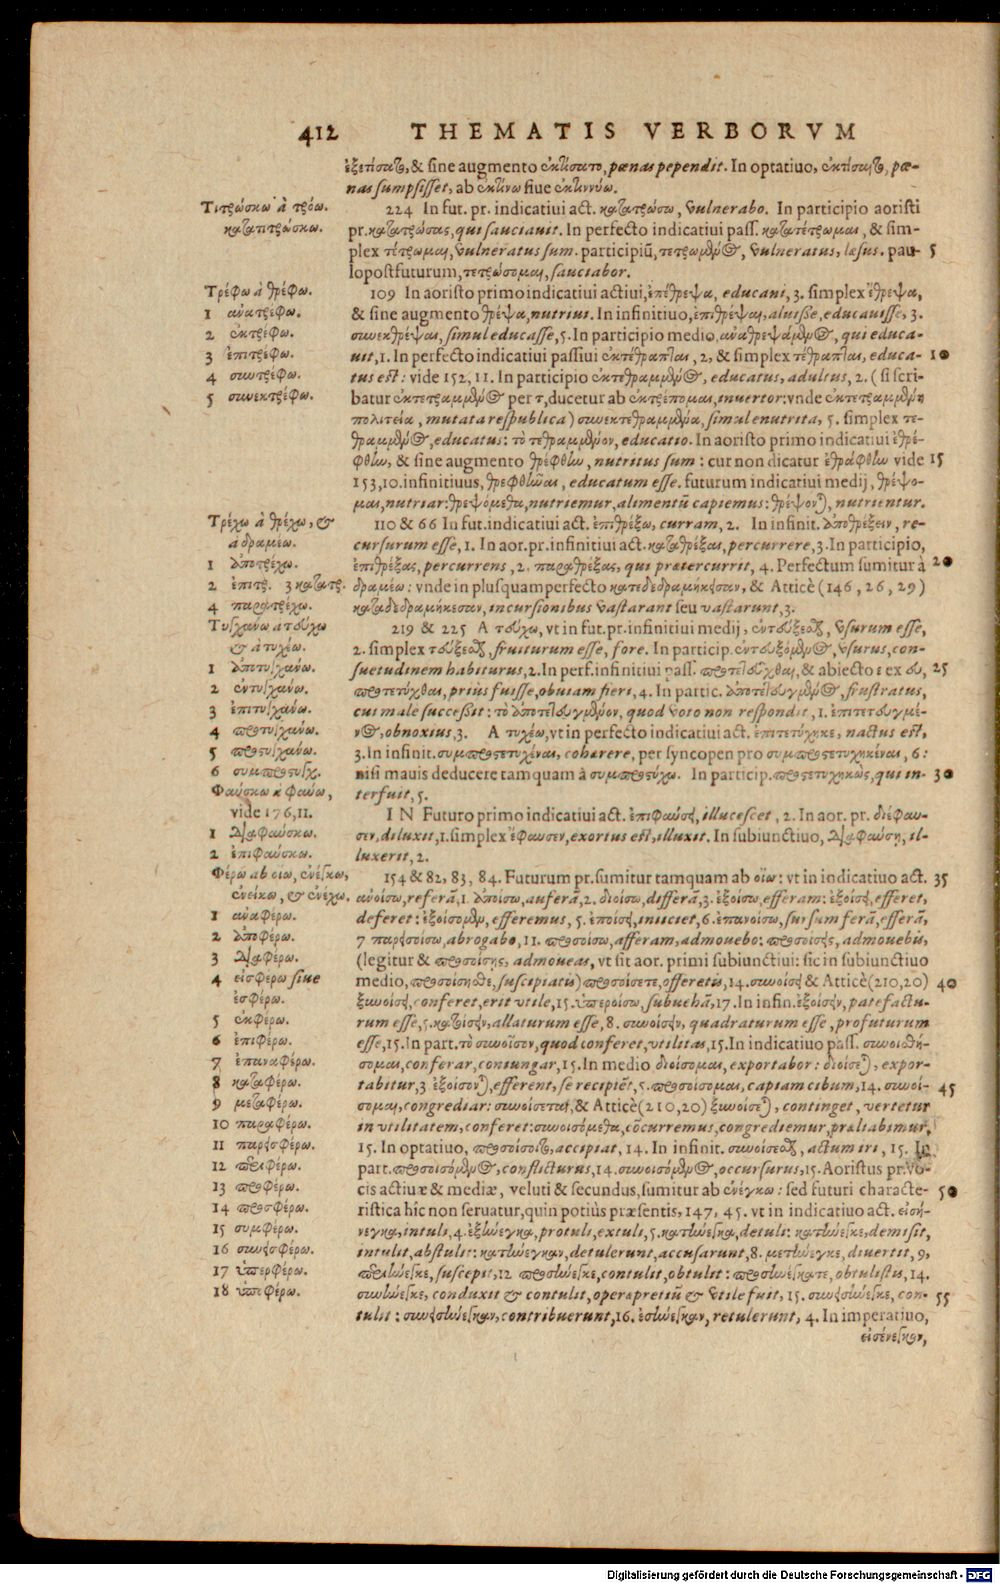 412 THEMATIS VERBORVM
ἐξετίσατο, & sine augmento ἐκτίσατο, pœnas pependit. In optatiuo, ἐκτίσαιτο, pœ-
nas sumpsisset, ab ἐκτίνω siue ἐκτιννύω.
Τιτρώσκω à τρόω.
καταπτρώσκω.
224 In fut. pr. indicatiui act. κατατρώσω, vulnerabo. In participio aoristi
pr. κατατρώσας, qui sauciauit. In perfecto indicatiui pass. κατατέτρωμαι, & sim-
plex τέτρωμαι, vulneratus sum. participiũ, τετρωμένος, vulneratus, læsus. pau- 5
lopostfuturum, τετρώσομαι, sauciabor.
Τρέφω à θρέφω.
1 ἀνατρέφω.
2 ἐκτρέφω.
3 ἐπιτρέφω.
4 συντρέφω.
5 συνεκτρέφω.
109 In aoristo primo indicatiui actiui, ἐπέθρεψα, educani, 3. simplex ἔθρεψα,
& sine augmento θρέψα, nutrius. In infinitiuo, ἐπιθρέψαι, aluisse, educauisse, 3.
συνεκθρέψαι, simul educasse, 5. In participio medio, ἀναθρεψάμενος, qui educa-
uit, 1. In perfecto indicatiui passiui ἐκτέθραπται, 2, & simplex τέθραπται, educa- 10
tus est: vide 152, 11. In participio ἐκτεθραμμένος, educatus, adultus, 2. (si scri-
batur ἐκτετραμμένος per τ, ducetur ab ἐκτρέπομαι, inuertor: vnde ἐκτετραμμένη
πολιτεία, mutata respublica) συνεκτεθραμμένα, simul nutrita, 5. simplex τε-
θραμμένος, educatus: τὸ τεθραμμένον, educatio. In aoristo primo indicatiui ἐθρέ-
φθην, & sine augmento θρέφθην, nutritus sum: cur non dicatur ἐθράφθην vide 15
153, 10. infinitiuus, θρεφθῆναι, educatum esse. futurum indicatiui medij, θρέψο-
μαι, nutriar: θρεψόμεθα, nutriemur, alimentũ capiemus: θρέψονται, nutrientur.
Τρέχω à θρέχω, &
à δραμέω.
1 ἀποτρέχω.
2 ἐπιτρ. 3 κατατρ.
4 παρατρέχω.
110 & 66 In fut. indicatiui act. ἐπιθρέξω, curram, 2. In infinit. ἀποθρέξειν, re-
cursurum esse, 1. In aor. pr. infinitiui act. καταθρέξαι, percurrere, 3. In participio,
ἐπιθρέξας, percurrens, 2. παραθρέξας, qui prætercurrit, 4. Perfectum sumitur à 20
δραμέω: vnde in plusquamperfecto κατεδεδραμήκησαν, & Atticè (146, 26, 29)
καταδεδραμήκεσαν, incursionibus vastarant seu vastarunt, 3.
Τυγχάνω à τεύχω
& à τυχέω.
1 ἀποτυγχάνω.
2 ἐντυγχάνω.
3 ἐπιτυγχάνω.
4 προτυγχάνω.
5 προστυγχάνω.
6 συμπροστυγχ.
219 & 225 A τεύχω, vt in fut. pr. infinitiui medij, ἐντεύξεσθαι, vsurum esse,
2. simplex τεύξεσθαι, fruiturum esse, fore. In particip. ἐντευξόμενος, vsurus, con-
suetudinem habiturus, 2. In perf. infinitiui pass. προτετεῦχθαι, & abiecto ε ex ευ, 25
προτετύχθαι, priùs fuisse, obuiam fieri, 4. In partic. ἀποτετευγμένος, frustratus,
cui male successit: τὸ ἀποτετευγμένον, quod voto non respondit, 1. ἐπιτετευγμέ-
νος, obnoxius, 3. A τυχέω, vt in perfecto indicatiui act. ἐπιτετύχηκε, nactus est,
3. In infinit. συμπροστετυχέναι, cohærere, per syncopen pro συμπροστετυχηκέναι, 6:
nisi mauis deducere tamquam à συμπροστύχω. In particip. προστετυχηκὼς, qui in- 30
terfuit, 5.
Φαύσκω κ φαύω,
vide 176, 11.
1 διαφαύσκω.
2 ἐπιφαύσκω.
IN Futuro primo indicatiui act. ἐπιφαύσει, illucescet, 2. In aor. pr. διέφαυ-
σεν, diluxit, 1. simplex ἔφαυσεν, exortus est, illuxit. In subiunctiuo, διαφαύσῃ, il-
luxerit, 2.
Φέρω ab οἴω, ἐνέγκω,
ἐνείκω, & ἐνέχω.
1 ἀναφέρω.
2 ἀποφέρω.
3 διαφέρω.
4 εἰσφέρω siue
ἐσφέρω.
5 ἐκφέρω.
6 ἐπιφέρω.
7 ἐπαναφέρω.
8 καταφέρω.
9 μεταφέρω.
10 παραφέρω.
11 παρεισφέρω.
12 περιφέρω.
13 προφέρω.
14 προσφέρω.
15 συμφέρω.
16 συνεισφέρω.
17 ὑπερφέρω.
18 ὑποφέρω.
154 & 82, 83, 84. Futurum pr. sumitur tamquam ab οἴω: vt in indicatiuo act. 35
ἀνοίσω, referã, 1. ἀποίσω, auferã, 2. διοίσω, differã, 3. ἐξοίσω, efferam: ἐξοίσει, efferet,
deferet: ἐξοίσομεν, efferemus, 5. ἐποίσει, iniiciet, 6. ἐπανοίσω, sursum ferã, efferã,
7 παρεισοίσω, abrogabo, 11. προσοίσω, afferam, admouebo: προσοίσεις, admouebis,
(legitur & προσοίσῃς, admoueas, vt sit aor. primi subiunctiui: sic in subiunctiuo
medio, προσοίσησθε, suscipiatis) προσοίσετε, offeretis, 14. συνοίσει & Atticè (210, 20) 40
ξυνοίσει, conferet, erit vtile, 15. ὑπεροίσω, subuehã, 17. In infin. ἐξοίσειν, patefactu-
rum esse, 5. κατοίσειν, allaturum esse, 8. συνοίσειν, quadraturum esse, profuturum
esse, 15. In part. τὸ συνοῖσον, quod conferet, vtilitas, 15. In indicatiuo pass. συνοισθή-
σομαι, conferar, coniungar, 15. In medio διοίσομαι, exportabor: διοίσεται, expor-
tabitur, 3 ἐξοίσονται, efferent, se recipiẽt, 5. προσοίσομαι, capiam cibum, 14. συνοί- 45
σομαι, congrediar: συνοίσεται, & Atticè (210, 20) ξυνοίσεται, continget, vertetur
in vtilitatem, conferet: συνοισόμεθα, cõcurremus, congrediemur, præliabimur,
15. In optatiuo, προσοίσοιτο, accipiat, 14. In infinit. συνοίσεσθαι, actum iri, 15. In
part. προσοισόμενος, conflicturus, 14. συνοισόμενος, occursurus, 15. Aoristus pr. vo-
cis actiuæ & mediæ, veluti & secundus, sumitur ab ἐνέγκω: sed futuri characte- 50
ristica hîc non seruatur, quin potiùs præsentis, 147, 45. vt in indicatiuo act. εἰσή-
νεγκα, intuli, 4. ἐξήνεγκα, protuli, extuli, 5. κατήνεγκα, detuli: κατήνεγκε, demisit,
intulit, abstulit: κατήνεγκαν, detulerunt, accusarunt, 8. μετήνεγκε, diuertit, 9,
περιήνεγκε, suscepit, 12 προσήνεγκε, contulit, obtulit: προσηνέγκατε, obtulistis, 14.
συνήνεγκε, conduxit & contulit, operæpretiũ & vtile fuit, 15. συνεισήνεγκε, con- 55
tulit: συνεισήνεγκαν, contribuerunt, 16. ἐσήνεγκαν, retulerunt, 4. In imperatiuo,
εἰσένεγκαν,
Digitalisierung gefördert durch die Deutsche Forschungsgemeinschaft - DFG